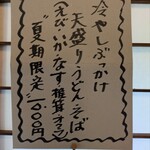 冷やしぶっかけ
天盛りうどん・そば
(えび・かなす根菜オクラ)
夏期限定一,000円